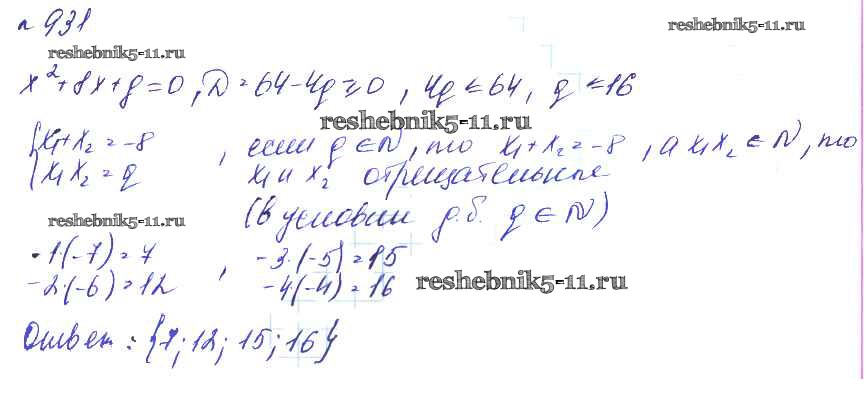 № 931
reshebnik5-11.ru
reshebnik5-11.ru
x²+8x+q=0, D=64-4q≥0, 4q≤64, q≤16
reshebnik5-11.ru
{x₁+x₂=-8
x₁x₂=q
, если q∈N, то x₁+x₂=-8, а x₁x₂∈N, то
x₁ и x₂ отрицательные
reshebnik5-11.ru
(в условии д.б. q∈N)
-1·(-7)=7, -3·(-5)=15
-2·(-6)=12 -4(-4)=16
reshebnik5-11.ru
Ответ: {7; 12; 15; 16}